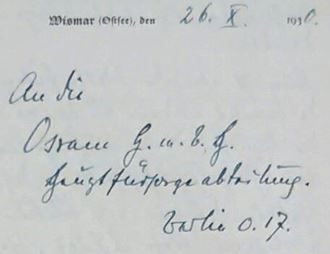 Wismar (Ostsee), den 26. X. 1930.
An die
Osram G.m.b.H.
Hauptfürsorgeabteilung.
Berlin O.17.